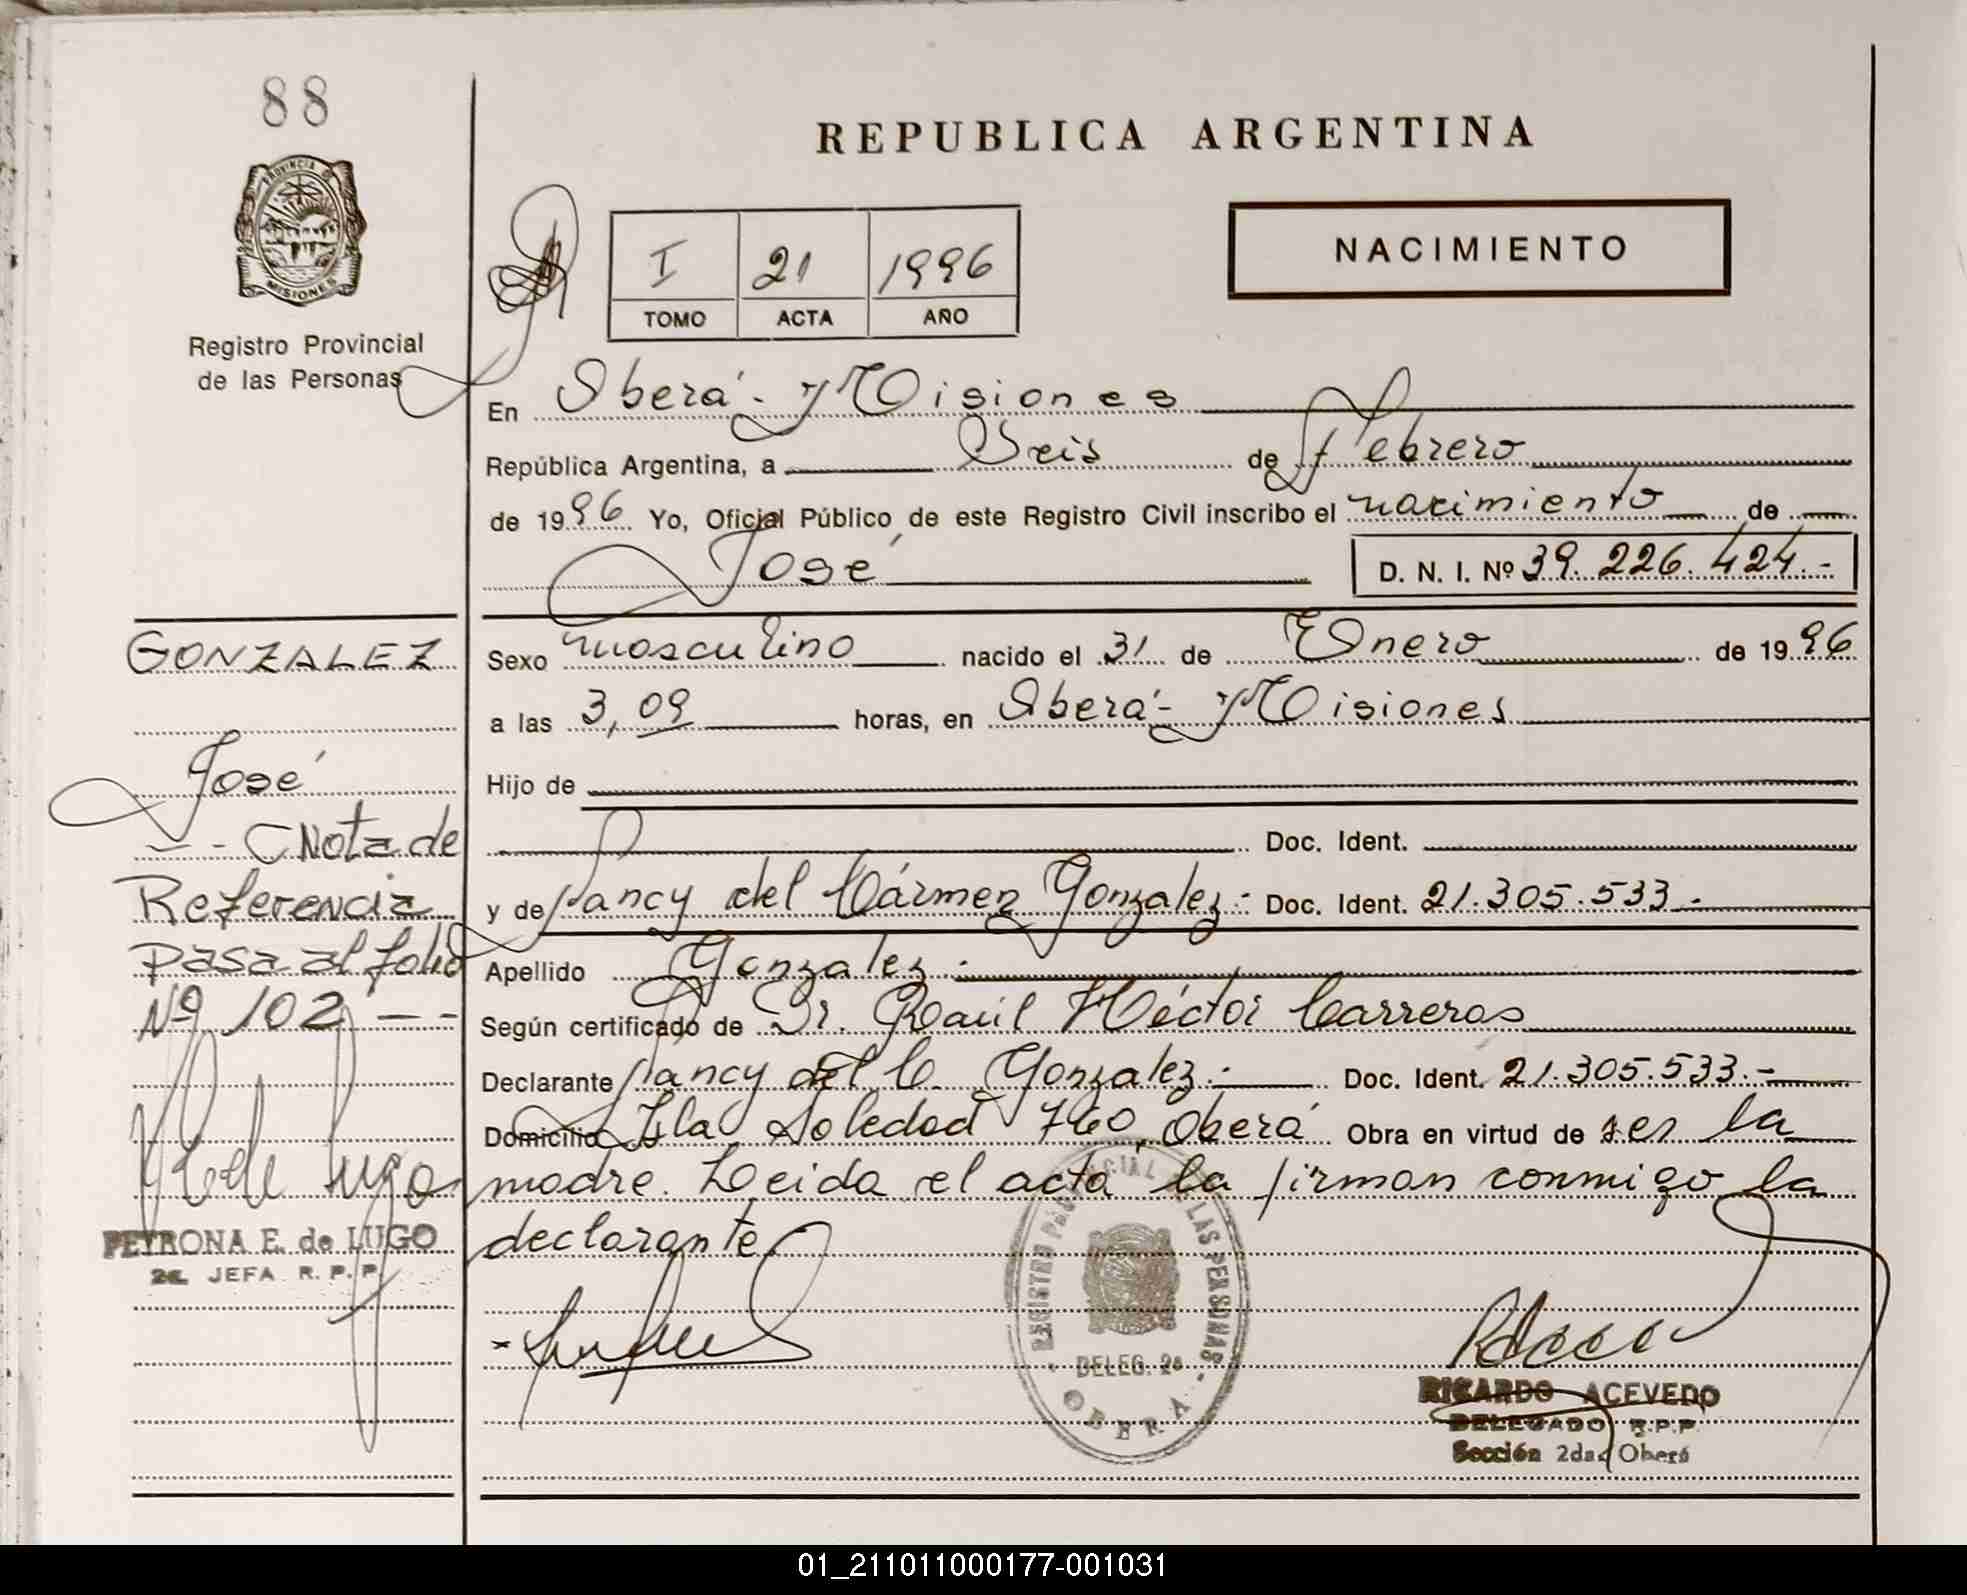 88
REPUBLICA ARGENTINA
PROVINCIA DE
MISIONES
Registro Provincial
de las Personas
I 21 1996
TOMO ACTA AÑO
NACIMIENTO
En Oberá - Misiones
República Argentina, a Seis de Febrero
de 1996 Yo, Oficial Público de este Registro Civil inscribo el nacimiento de
José D. N. I. Nº 39.226.424.-
GONZALEZ
José
- - Nota de
Referencia
Pasa al folio
Nº 102 - -
PETRONA E. de LUGO
JEFA R. P. P.
Sexo masculino nacido el 31 de Enero de 1996
a las 3,09 horas, en Oberá - Misiones
Hijo de
Doc. Ident.
y de Nancy del Cármen Gonzalez.- Doc. Ident. 21.305.533.-
Apellido Gonzalez.-
Según certificado de Dr. Raúl Héctor Carreras
Declarante Nancy del C. Gonzalez.- Doc. Ident. 21.305.533.-
Domicilio Isla Soledad 760, Oberá Obra en virtud de ser la
madre. Leida el acta la firman conmigo la
declarante
REGISTRO PROVINCIAL DE LAS PERSONAS
DELEG. 2a
OBERA
RICARDO ACEVEDO
DELEGADO R.P.P.
Sección 2da. Oberá
01_211011000177-001031